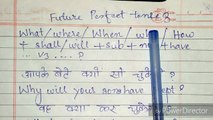 Future Perfect tense 3
What/where/When/ / How
+ shall/will + sub + not + have
... V3 .... ?
आपके बेटे क्यों सो चुकेंगे ?
Why will your sons have slept ?
वह क्या कर चुकेगा ?
PowerDirector